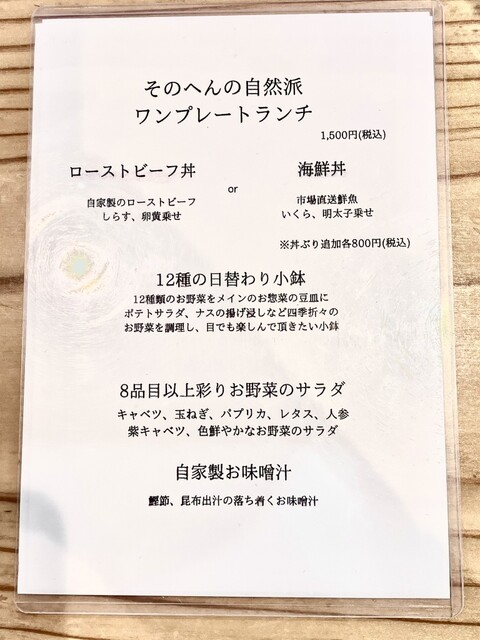 そのへんの自然派
ワンプレートランチ
1,500円(税込)
ローストビーフ丼
自家製のローストビーフ
しらす、卵黄乗せ
or
海鮮丼
市場直送鮮魚
いくら、明太子乗せ
※丼ぶり追加各800円(税込)
12種の日替わり小鉢
12種類のお野菜をメインのお惣菜の豆皿に
ポテトサラダ、ナスの揚げ浸しなど四季折々の
お野菜を調理し、目でも楽しんで頂きたい小鉢
8品目以上彩りお野菜のサラダ
キャベツ、玉ねぎ、パプリカ、レタス、人参
紫キャベツ、色鮮やかなお野菜のサラダ
自家製お味噌汁
鰹節、昆布出汁の落ち着くお味噌汁